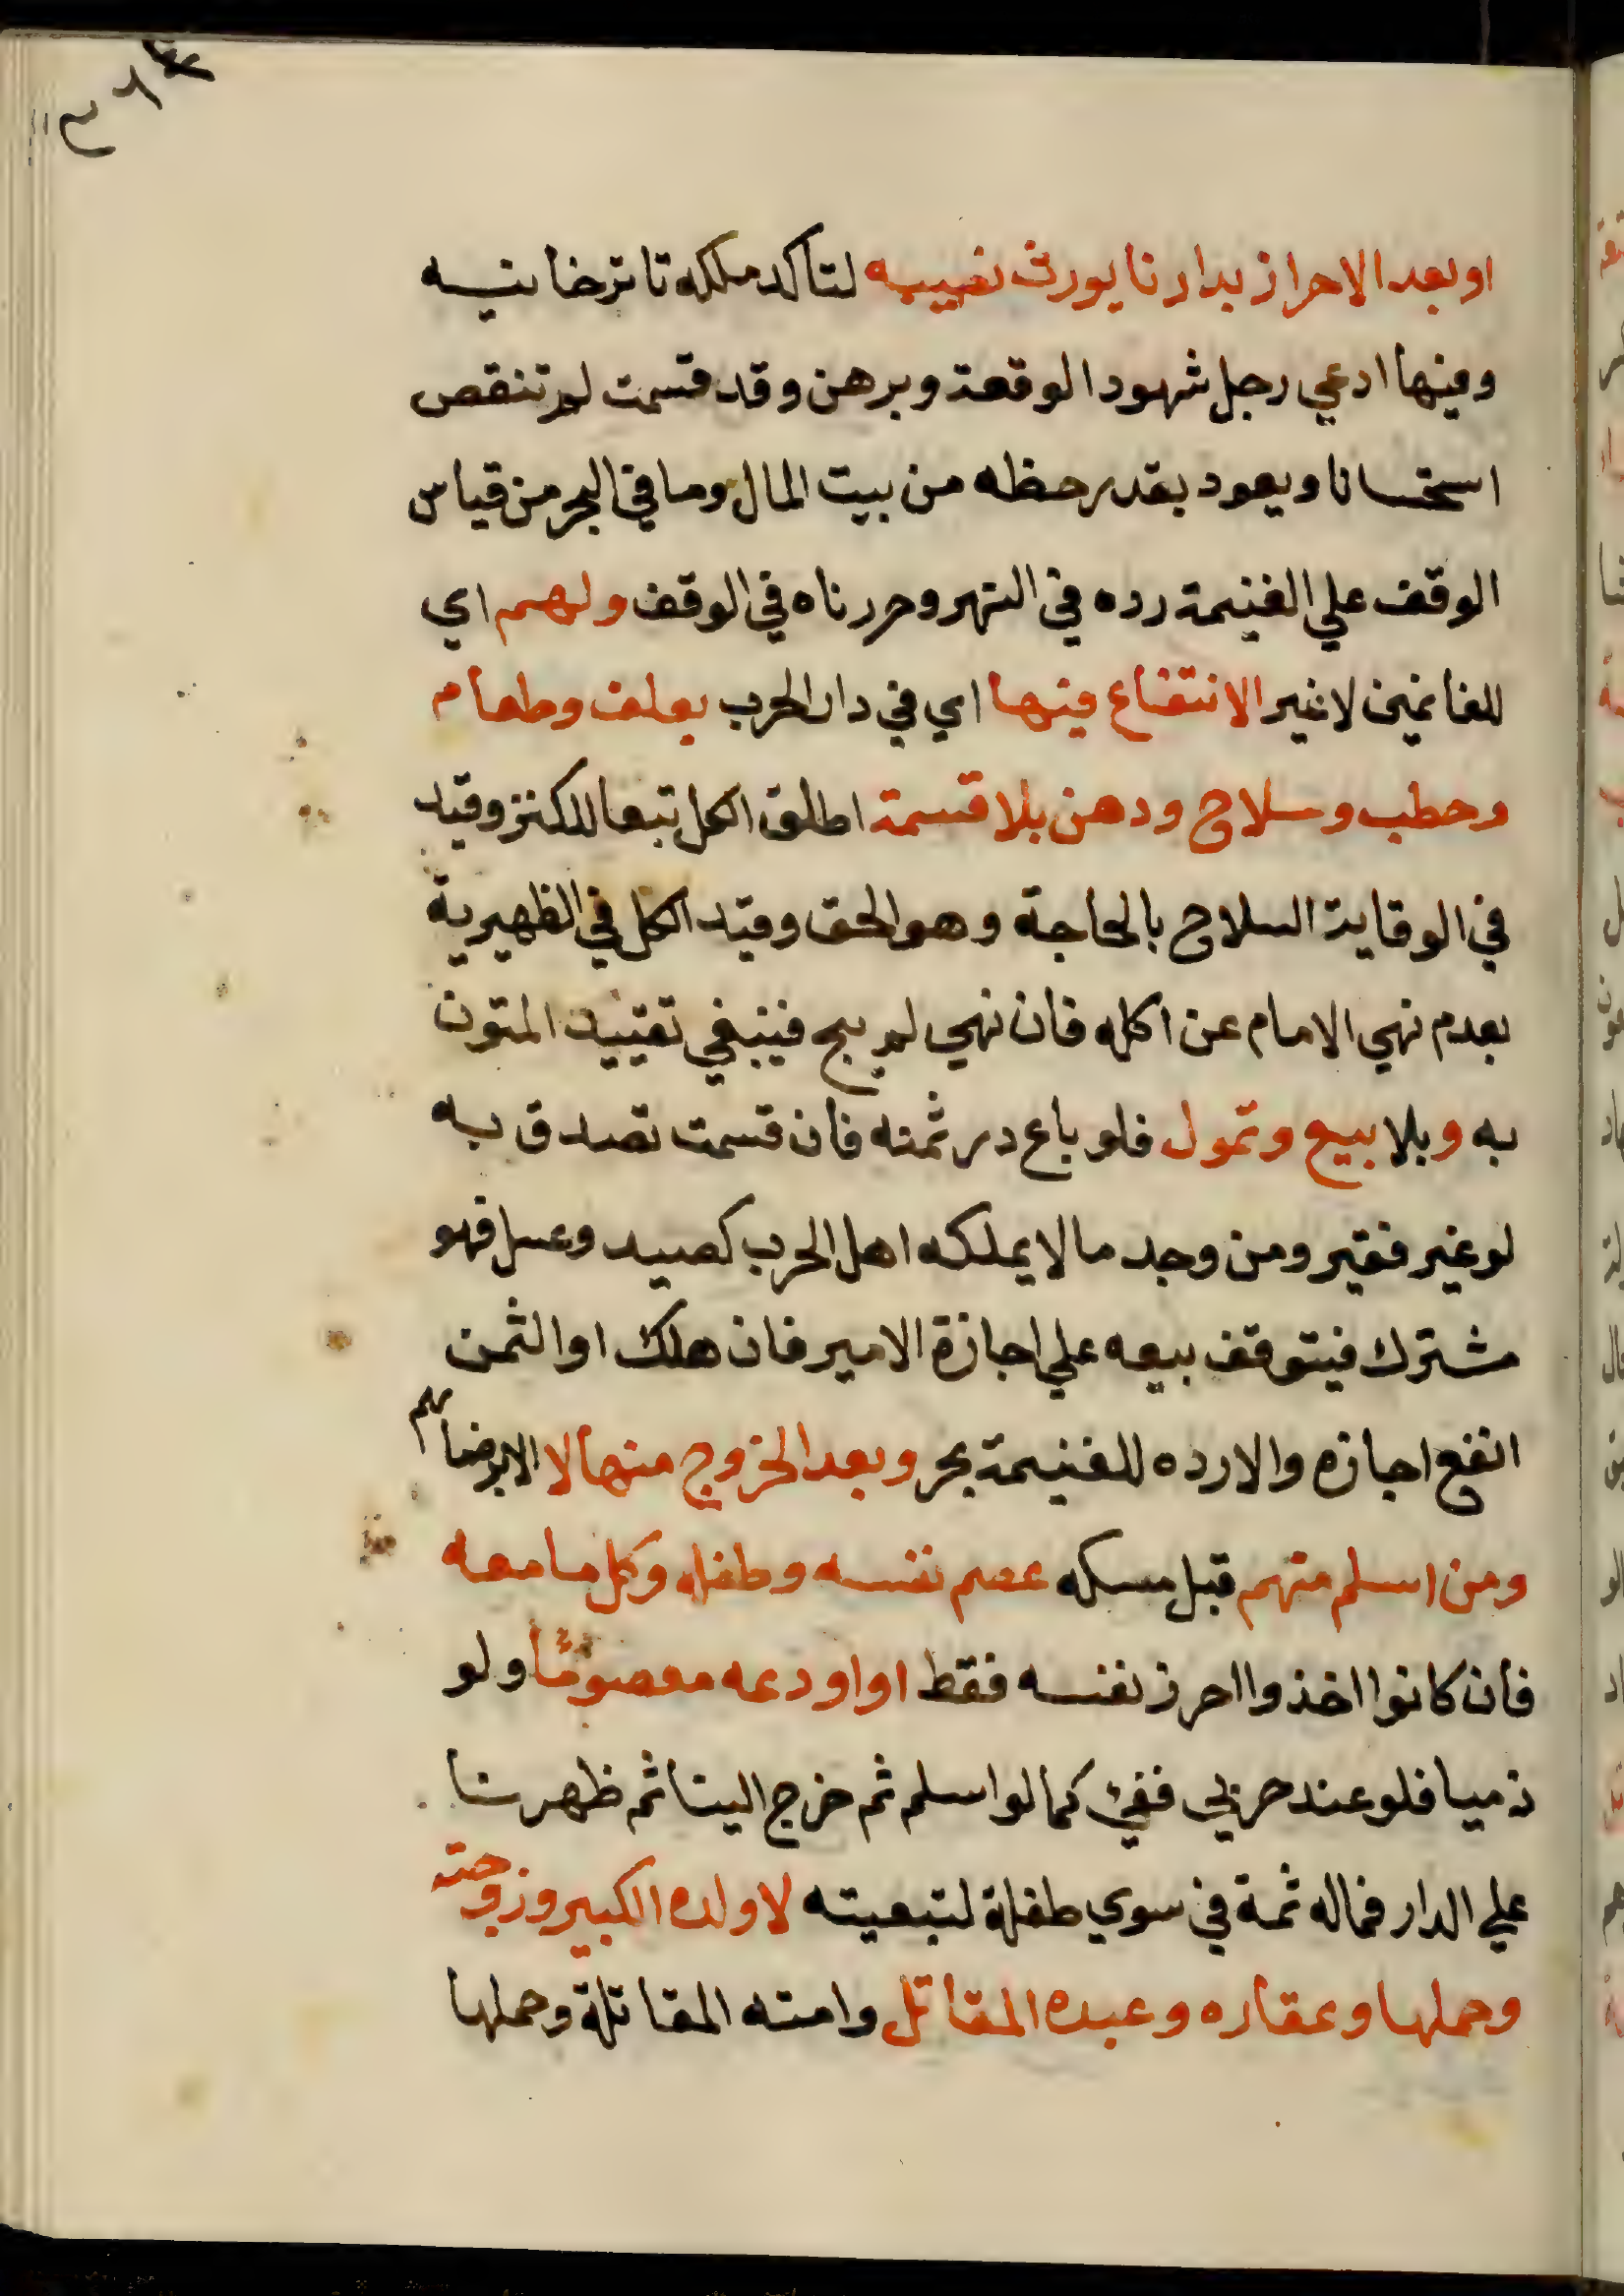 او بعد الاحراز بدارنا يورث نصيبه لتاكد ملكه تاترخانيسه
وفيها ادعي رجل شهود الوقعة وبرهن وقد قسمت لم تنقص
استحسانا ويعود بقدر حظه من بيت المال وما في البحر من قياس
الوقف علي الغنيمة رده في النهر وحررناه في الوقف ولهم اي
للغانمين لا غير الانتفاع فيها اي في دار الحرب بعلف وطعام
وحطب وسلاح ودهن بلا قسمة اطلق الكل تبعا للكنز وقيد
في الوقاية السلاح بالحاجة وهو الحق وقيد الكل في الظهيرية
بعدم نهي الامام عن اكله فان نهي لم يبح فينبغي تقييد المتون
به وبلا بيع وتمول فلو باع در ثمنه فان قسمت تصدق به
لو غير فقير ومن وجد ما لا يملكه اهل الحرب كصيد وعسل فهو
مشترك فيتوقف بيعه علي اجازة الامير فان هلك او الثمن
انفع اجازه والا رده للغنيمة بحر وبعد الخروج منها لا الا برضاهم
ومن اسلم منهم قبل مسكه عصم نفسه وطفله وكل ما معه
فان كانوا اخذوا احرز نفسه فقط او اودعه معصومًا ولو
ذميا فلو عند حربي ففيء كما لو اسلم ثم خرج الينا ثم ظهرنا
علي الدار فماله ثمة في سوي طفلة لتبعيته لا ولده الكبير وزوجته
وحملها وعقاره وعبده المقاتل وامته المقاتلة وحملها